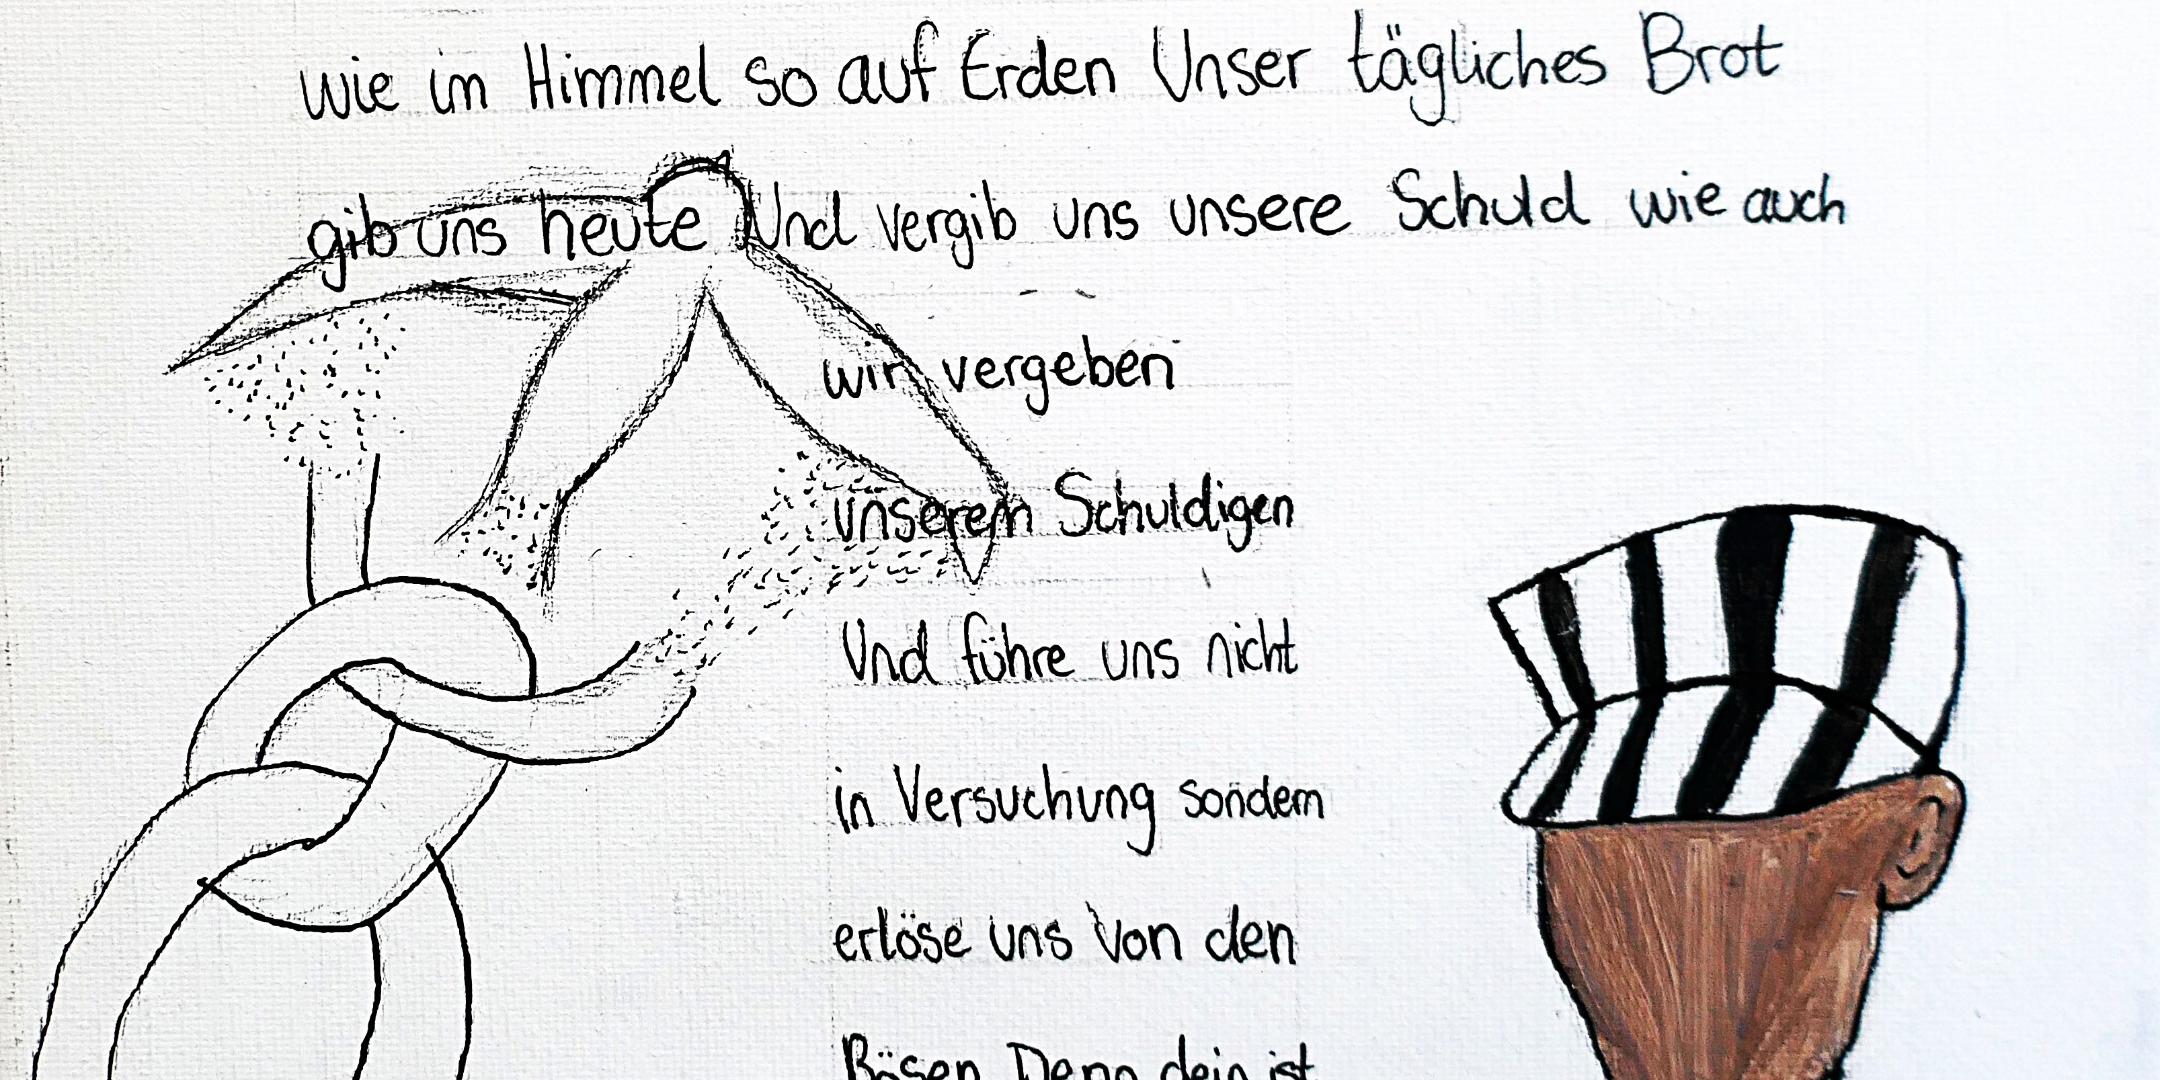 wie im Himmel so auf Erden Unser tägliches Brot
gib uns heute Und vergib uns unsere Schuld wie auch
wir vergeben
unserem Schuldigen
Und führe uns nicht
in Versuchung sondern
erlöse uns von den
Bösen Denn dein ist